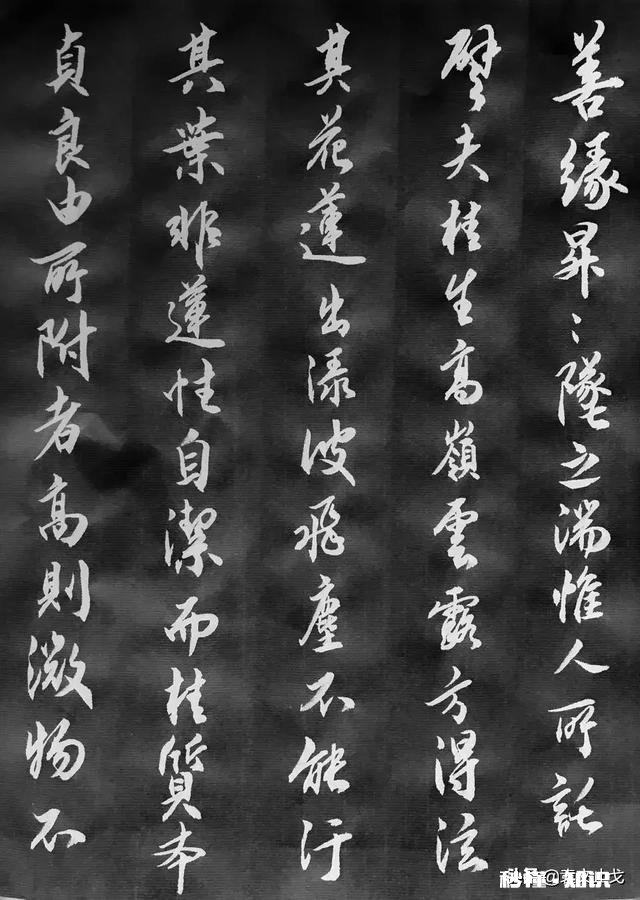 善緣昇〻墜之湍惟人所託
譬夫桂生高嶺雲露方得泫
其花蓮出淥波飛塵不能汙
其葉非蓮性自潔而桂質本
貞良由所附者高則微物不
秒懂·知识